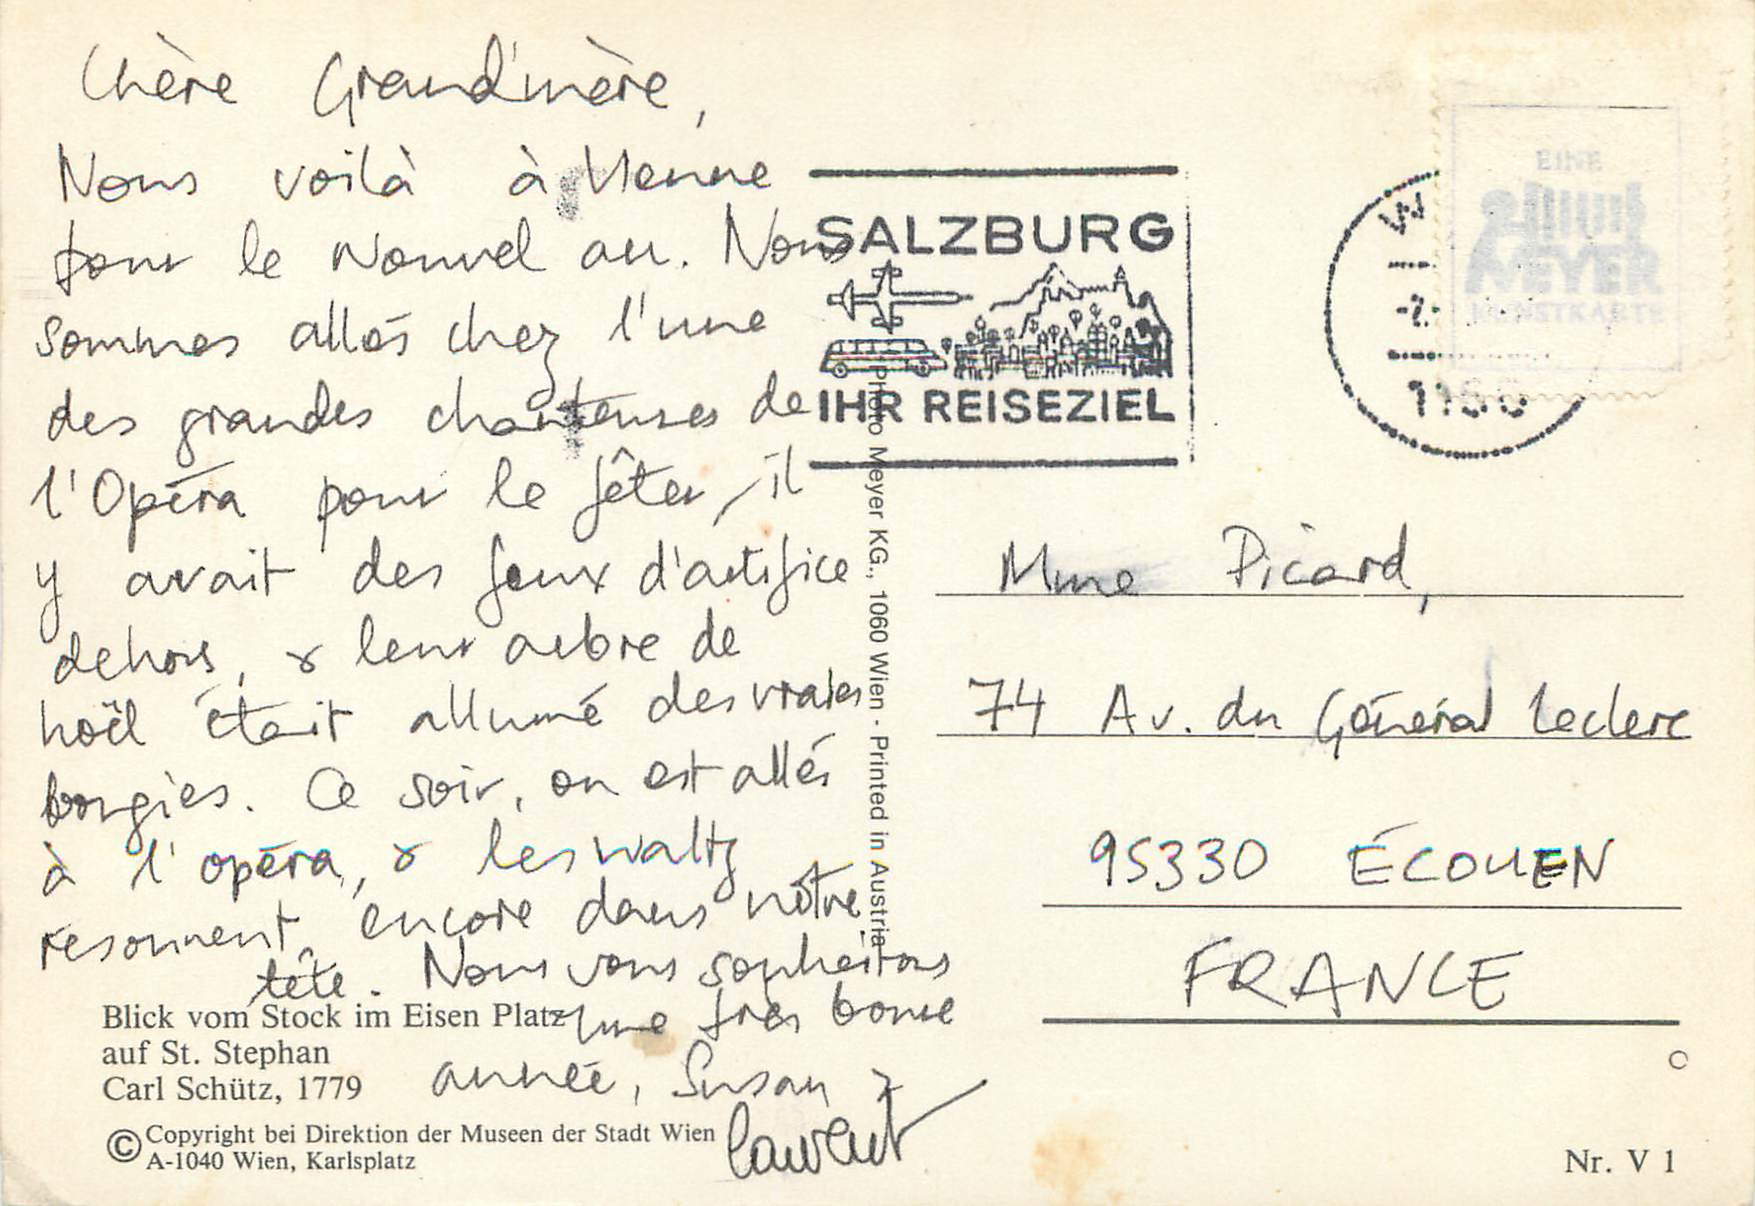 Chère Grand'mère,
Nous voilà à Vienne
pour le nouvel an. Nous
sommes allés chez l'une
des grandes chanteuses de
l'Opéra pour le fêter, il
y avait des feux d'artifice
dehors, & leur arbre de
noël était allumé des vraies
bougies. Ce soir, on est allés
à l'opéra, & les waltz
resonnent encore dans nôtre
tête. Nous vous souhaitons
une très bonne
année, Susan &
Laurent
Blick vom Stock im Eisen Platz
auf St. Stephan
Carl Schütz, 1779
© Copyright bei Direktion der Museen der Stadt Wien
A-1040 Wien, Karlsplatz
Photo Meyer KG., 1060 Wien - Printed in Austria
SALZBURG
IHR REISEZIEL
W
EINE
MEYER
KUNSTKARTE
Mme Picard,
74 Av. du Général Leclerc
95330 ÉCOUEN
FRANCE
Nr. V 1